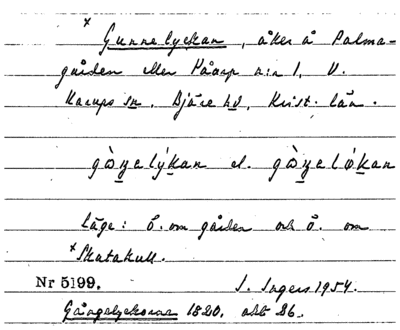 x
Gunnelyckan, åker å Palma-
gården eller Påarp n:r 1, V.
Karups sn, Bjäre hd, Krist. län.
gòŋelýkan el. gòŋeløkan
Läge: Ö. om gården och Ö. om
x Skatakull.
Nr 5199. I. Ingers 1954.
1820, akt 26.